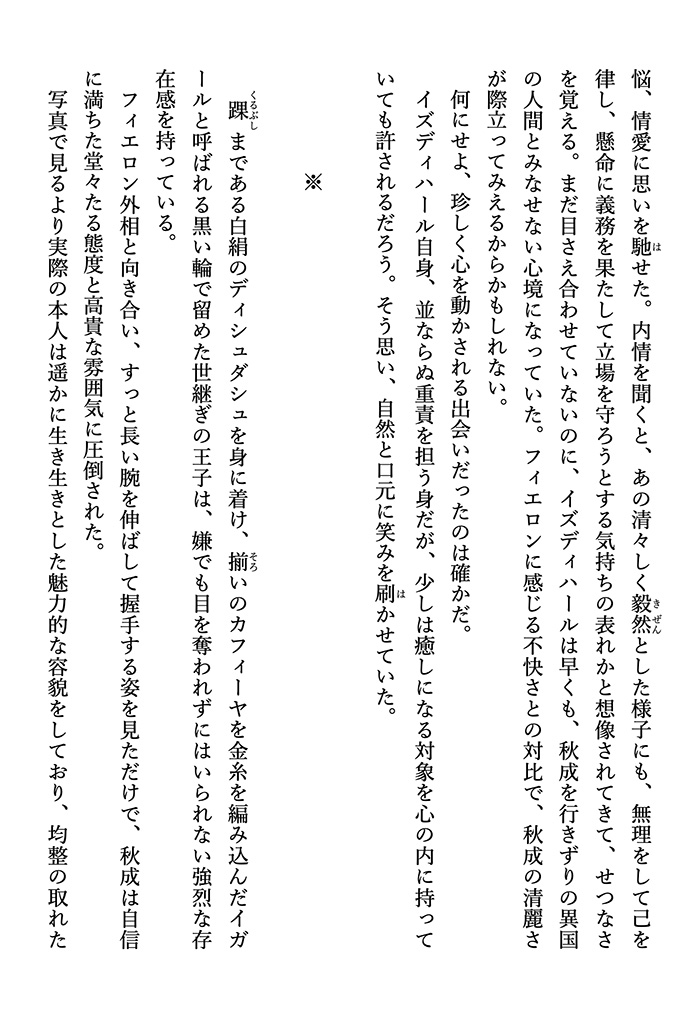 悩、情愛に思いを馳せた。内情を聞くと、あの清々しく毅然とした様子にも、無理をして己を
律し、懸命に義務を果たして立場を守ろうとする気持ちの表れかと想像されてきて、せつなさ
を覚える。まだ目さえ合わせていないのに、イズディハールは早くも、秋成を行きずりの異国
の人間とみなせない心境になっていた。フィエロンに感じる不快さとの対比で、秋成の清麗さ
が際立ってみえるからかもしれない。
何にせよ、珍しく心を動かされる出会いだったのは確かだ。
イズディハール自身、並ならぬ重責を担う身だが、少しは癒しになる対象を心の内に持って
いても許されるだろう。そう思い、自然と口元に笑みを刷かせていた。
※
踝まである白絹のディシュダシュを身に着け、揃いのカフィーヤを金糸を編み込んだイガ
ールと呼ばれる黒い輪で留めた世継ぎの王子は、嫌でも目を奪われずにはいられない強烈な存
在感を持っている。
フィエロン外相と向き合い、すっと長い腕を伸ばして握手する姿を見ただけで、秋成は自信
に満ちた堂々たる態度と高貴な雰囲気に圧倒された。
写真で見るより実際の本人は遥かに生き生きとした魅力的な容貌をしており、均整の取れた